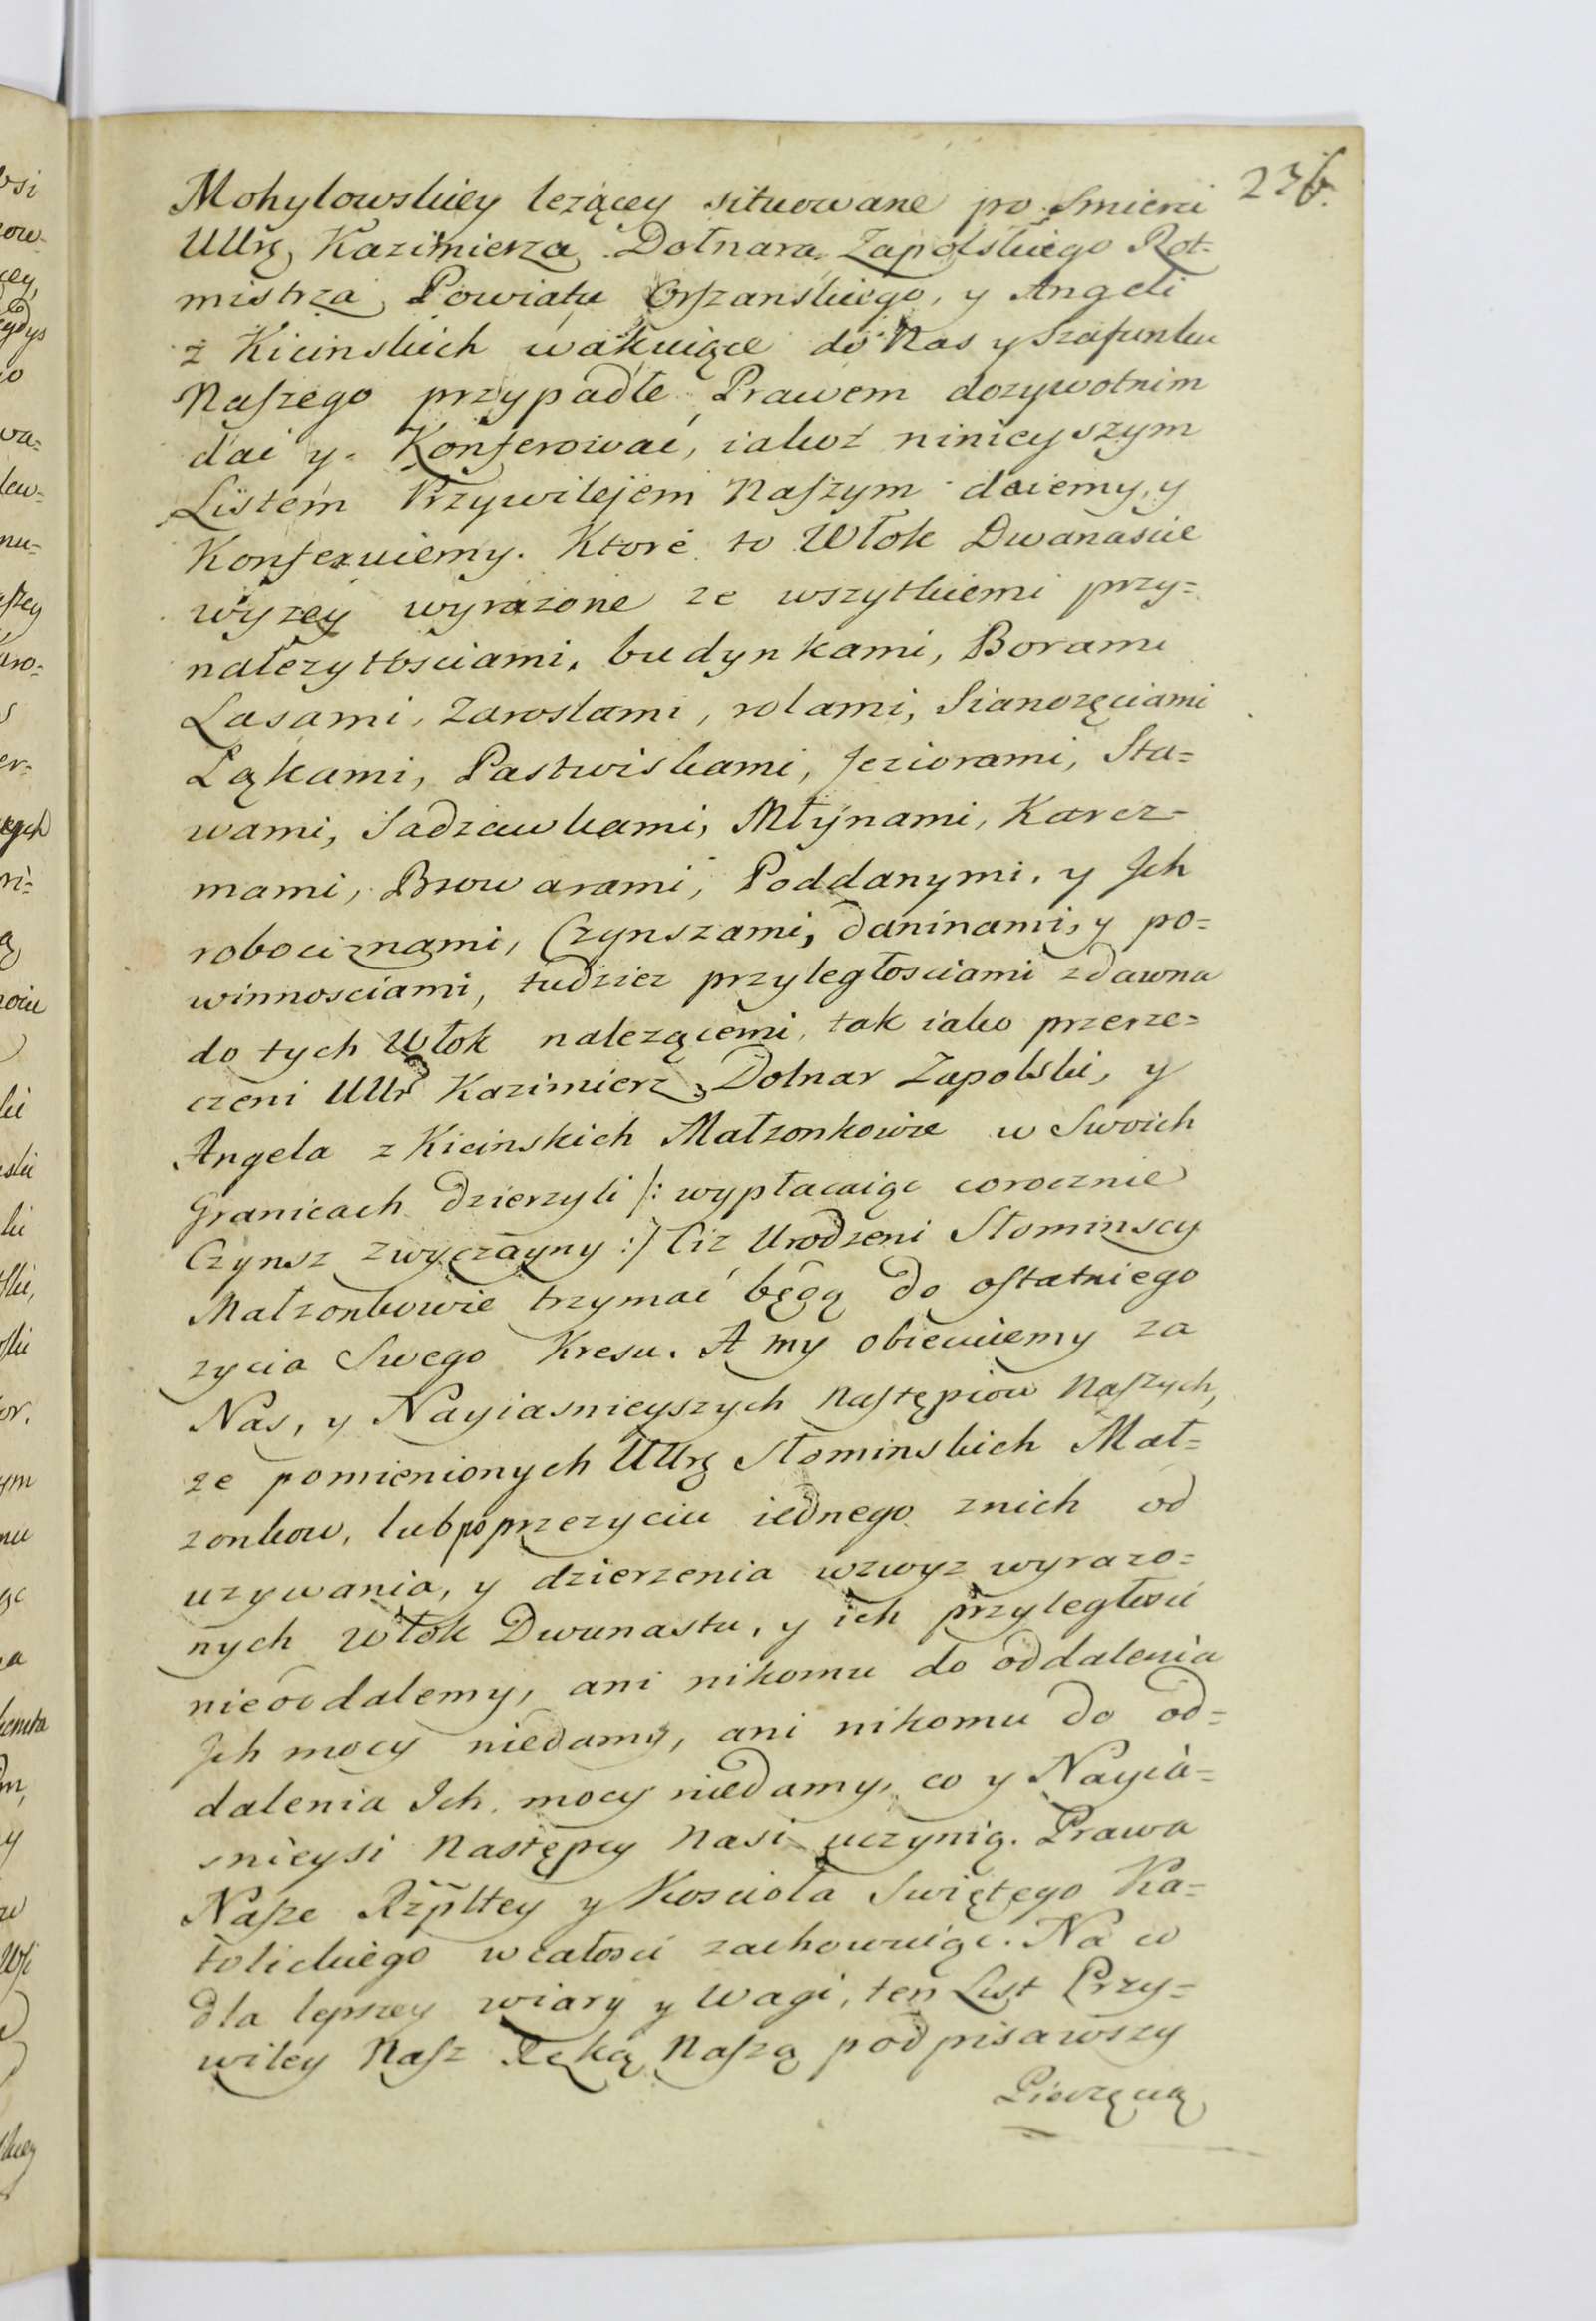 236.
Mohylowskiey leżącey situowane po Smierci
UUrg Kazimierza Dołnara Zapolskiego Rot-
mistrza Powiatu Orszanskiego, y Angeli
z Kicinskich wakuiące do Nas y Szafunku
Naszego przypadłe Prawem dozywotnim
dać y Konferować, iakoż ninieyszym
Listem Przywilejem Naszym daiemy, y
Konferuiemy. Ktore to Włok Dwanascie
wyzey wyrazone ze wszytkiemi przy=
nalezytosciami, budynkami, Borami
Lasami, Zaroslami, rolami, Sianozęciami
Łąkami, Pastwiskami, Jeziorami, Sta=
wami, Sadzawkami, Młynami, Karcz-
mami, Browarami, Poddanymi, y Jch
robociznami, Czynszami, daninami, y po=
winnosciami, tudziez przyległosciami zdawna
do tych Włok nalezącemi, tak iako przerze=
czeni UUr Kazimierz Dolnar Zapolski, y
Angela z Kicinskich Małzonkowie w Swoich
Granicach dzierzyli /: wypłacaiąc corocznie
Czynsz zwyczayny :/ Ciz Urodzeni Słominscy
Małzonkowie trzymać będą do ostatniego
zycia Swego Kresu. A my obiecuiemy za
Nas, y Nayiasnieyszych Następcow Naszych,
ze pomienionych UUrg Słominskich Mał=
zonkow, lub po przezyciu iednego znich od
uzywania, y dzierzenia wzwyz wyrazo=
nych Włok Dwunastu, y ich przyległosci
nieoddalemy, ani nikomu do oddalenia
Jch mocy niedamy, ani nikomu do od=
dalenia Ich mocy niedamy, co y Nayia=
snieysi Następcy Nasi uczynią. Prawa
Nasze Rzpltey y Kosciola Swiętego Ka=
tolickiego wcałosci zachowuiąc. Na co
dla lepszey wiary y Wagi, ten List Przy=
wiley Nasz Ręką Naszą podpisawszy
Pieczęcią